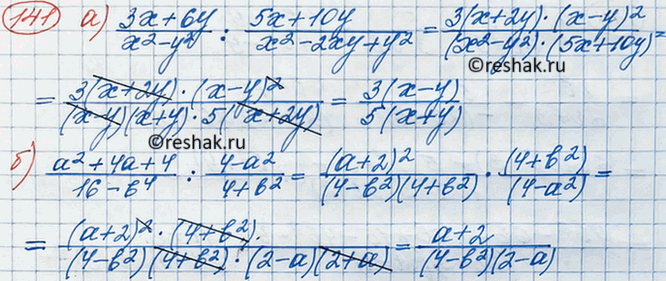 141 а) (3x+6y)/(x²-y²) : (5x+10y)/(x²-2xy+y²) = (3(x+2y)·(x-y)²)/((x²-y²)·(5x+10y)) =
©reshak.ru
= (3(x+2y)·(x-y)²)/((x-y)(x+y)·5(x+2y)) = (3(x-y))/(5(x+y))
©reshak.ru
б) (a²+4a+4)/(16-b⁴) : (4-a²)/(4+b²) = (a+2)²/((4-b²)(4+b²)) · (4+b²)/(4-a²) =
= ((a+2)²·(4+b²))/((4-b²)(4+b²)·(2-a)(2+a)) = (a+2)/((4-b²)(2-a))
©reshak.ru